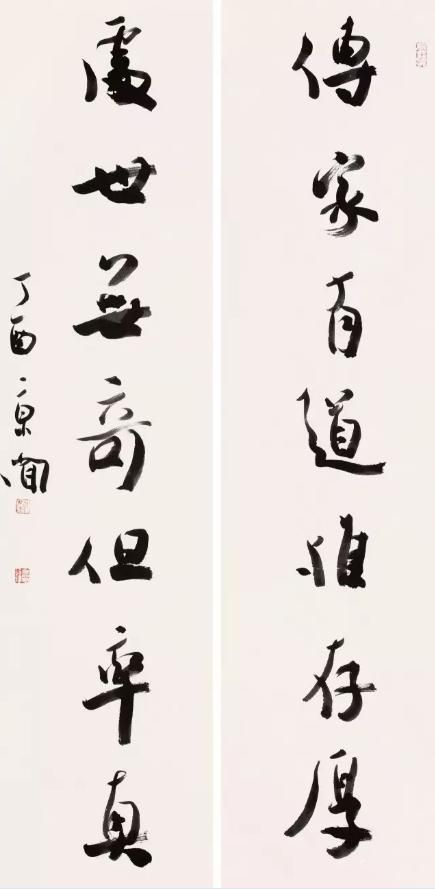 傳家有道惟存厚
處世無奇但率真
丁酉京闻